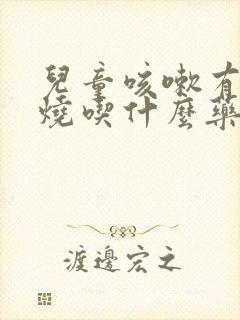 兒童咳嗽有
燒喫什麼藥
渡邊宏之